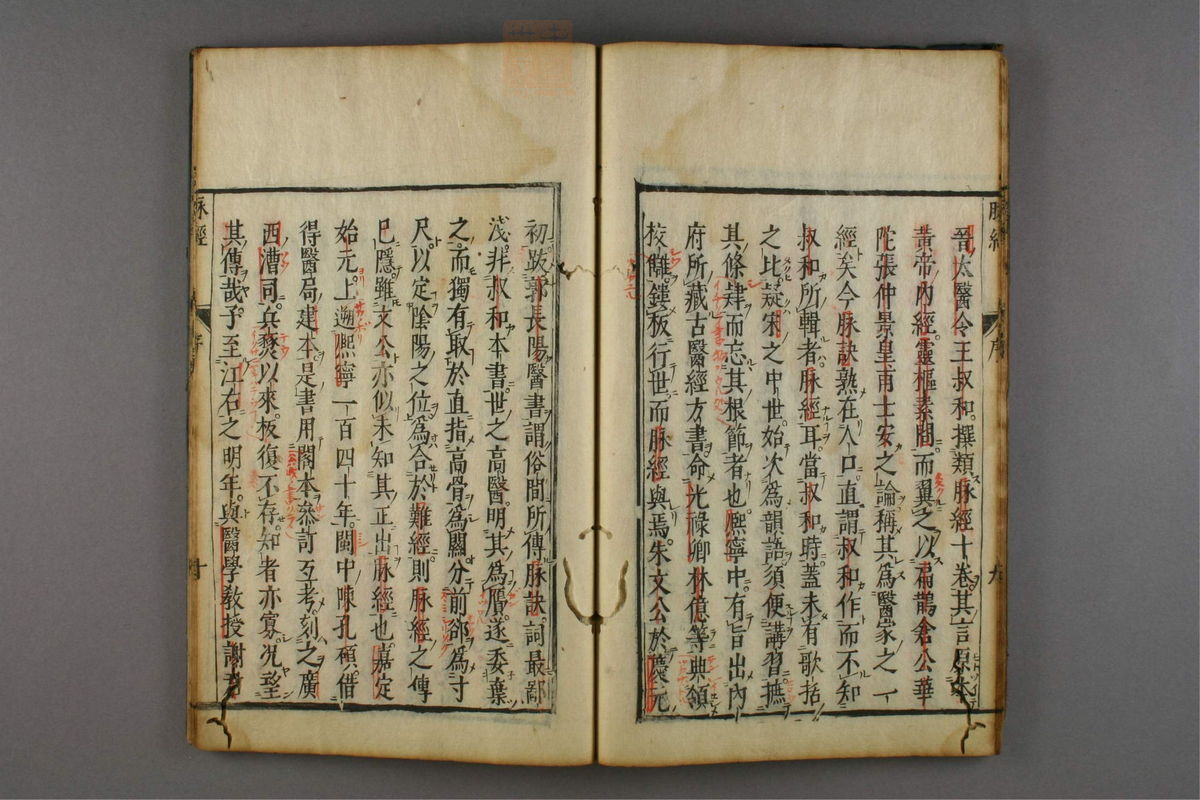 晉太醫令王叔和撰類脉經十卷其言原本
黃帝內經靈樞素問而翼之以扁鵲倉公華
陀張仲景皇甫士安之論稱其爲醫家之一
經矣今脉訣熟在人口直謂叔和作而不知
叔和所輯者脉經耳當叔和時蓋未有歌括
之比疑宋之中世始次爲韻語須便講習摭
其條肄而忘其根節者也熈寧中有旨出內
府所藏古醫經方書命光祿卿林億等典領
校讎鏤板行世而脉經與焉朱文公於慶元
初跋郭長陽醫書謂俗間所傳脉訣詞最鄙
淺非叔和本書世之高醫明其爲贋遂委棄
之而獨有取於直指高骨爲關分前郤爲寸
尺以定陰陽之位爲合於難經則脉經之傳
已隱雖文公亦似未知其正出脉經也嘉定
始元上遡熈寧一百四十年閩中陳孔碩借
得醫局建本是書用閣本叅訂互考刻之廣
西漕司兵燹以來板復不存知者亦寡况望
其傳哉予至江右之明年與醫學敎授謝
脉經
序
九
脉經
序
十